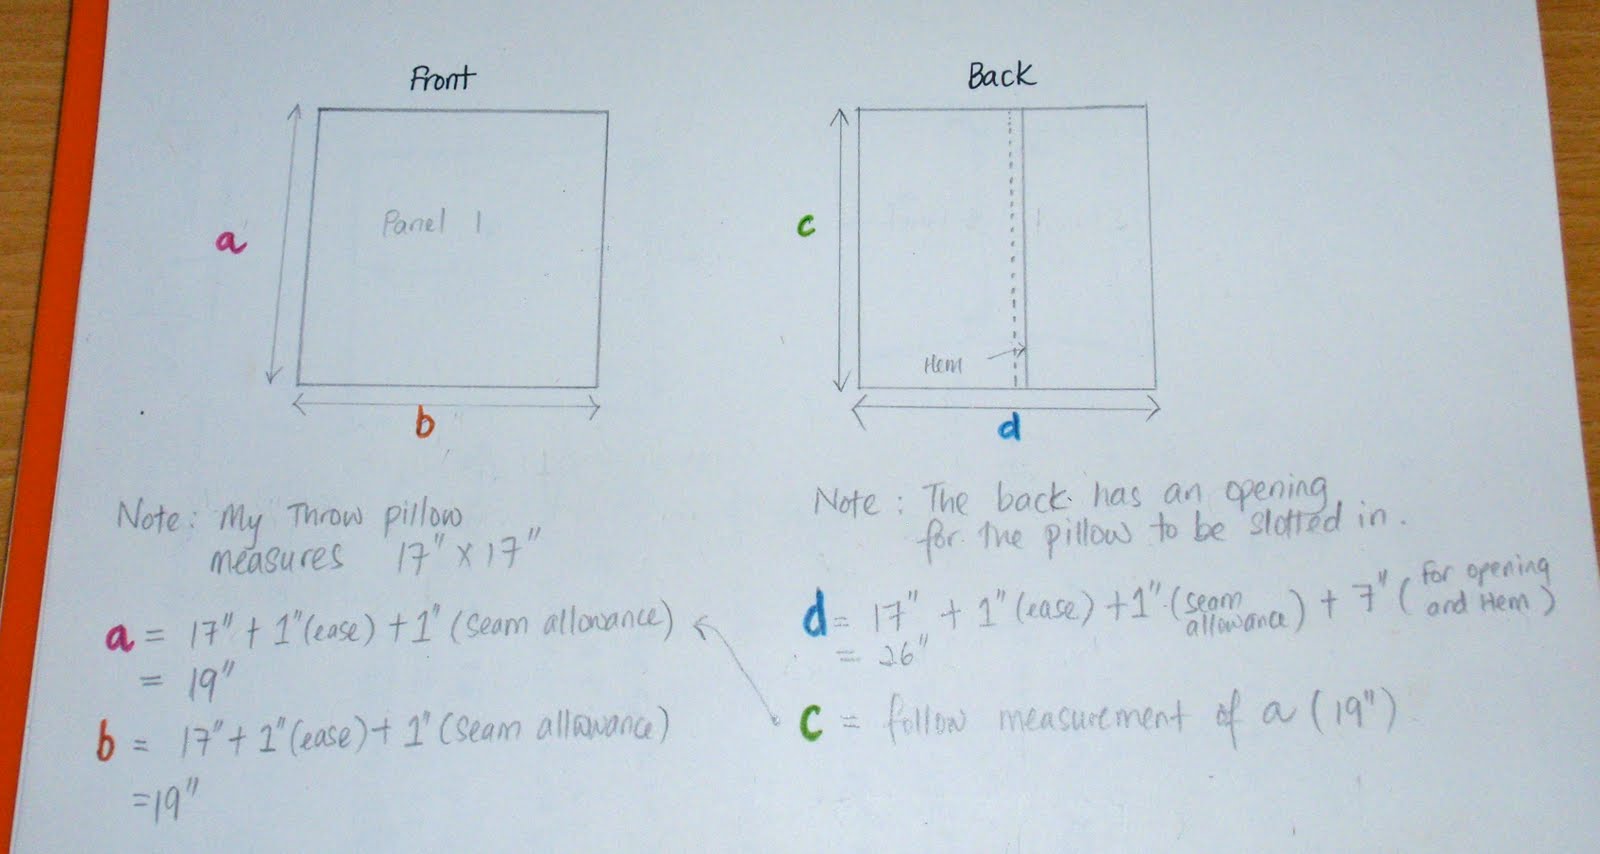 Front
a
Panel 1
b
Note: My Throw pillow
measures 17" x 17"
a = 17" + 1"(ease) + 1" (seam allowance)
= 19"
b = 17" + 1"(ease) + 1" (seam allowance)
=19"
Back
c
Hem
d
Note: The back has an opening
for the pillow to be slotted in.
d = 17" + 1" (ease) + 1" (seam allowance) + 7" (for opening and Hem)
= 26"
c = follow measurement of a (19")